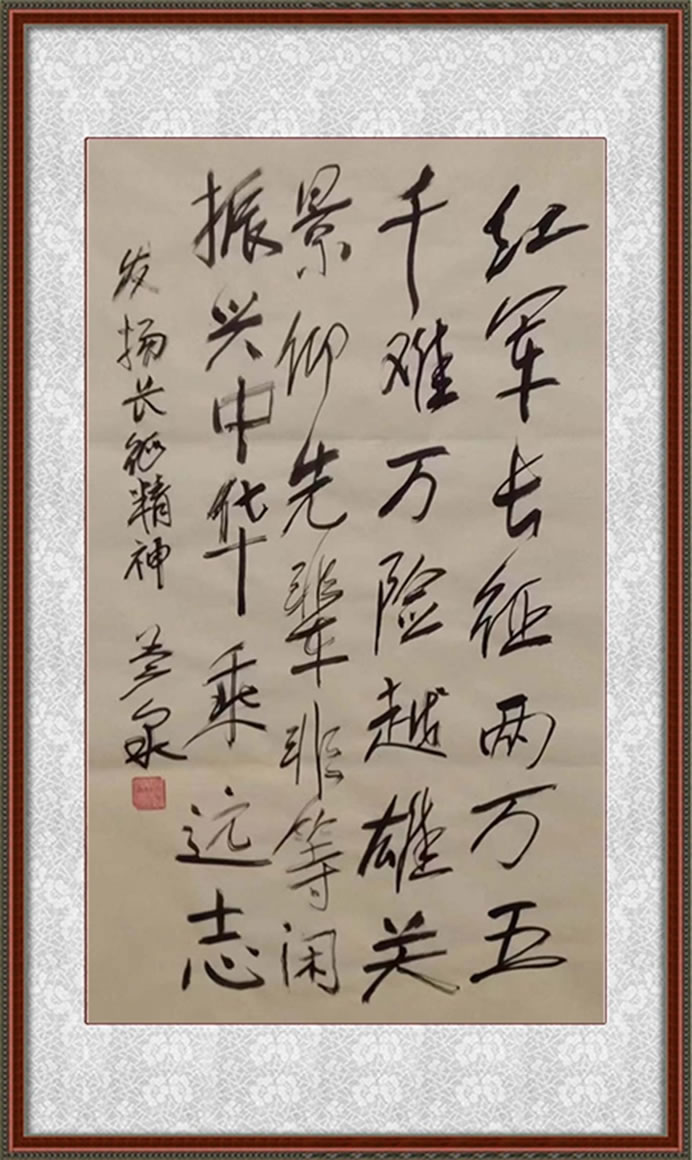 红军长征两万五
千难万险越雄关
景仰先辈非等闲
振兴中华乘远志
发扬长征精神
兰泉